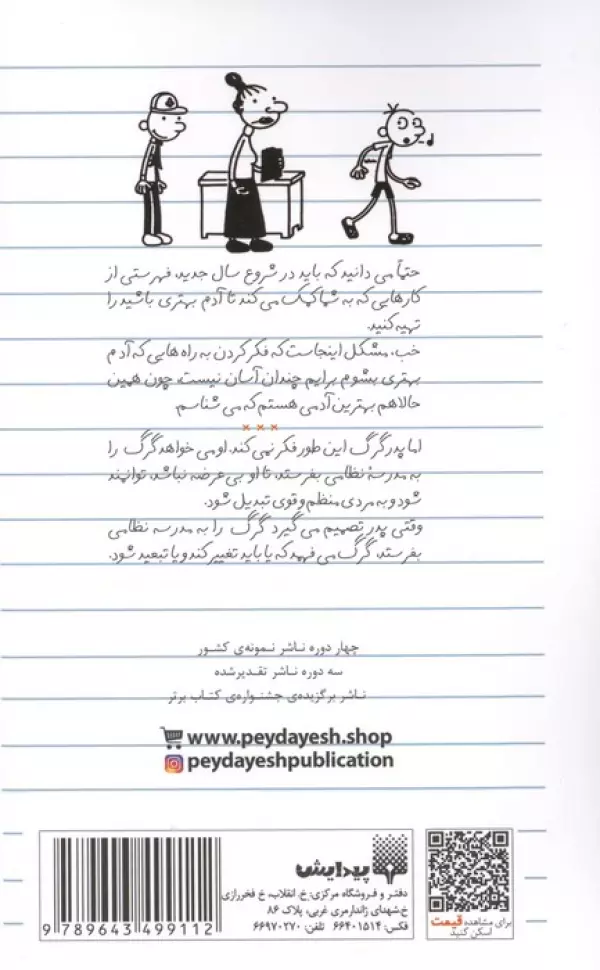 حتماً می دانید که باید در شروع سال جدید، فهرستی از
کارهایی که به شما کمک می کند تا آدم بهتری باشید را
تهیه کنید.
خب، مشکل اینجاست که فکر کردن به راه هایی که آدم
بهتری بشوم برایم چندان آسان نیست، چون همین
حالا هم بهترین آدمی هستم که می شناسم
×××
اما پدر گرگ این طور فکر نمی کند. او می خواهد گرگ را
به مدرسهٔ نظامی بفرستد، تا او بی عرضه نباشد، توانمند
شود و به مردی منظم و قوی تبدیل شود.
وقتی پدر تصمیم می گیرد گرگ را به مدرسه نظامی
بفرستد، گرگ می فهمد که یا باید تغییر کند و یا تبعید شود.
چهار دوره ناشر نمونه‌ی کشور
سه دوره ناشر تقدیرشده
ناشر برگزیده‌ی جشنواره‌ی کتاب برتر
www.peydayesh.shop
peydayeshpublication
پیدایش
دفتر و فروشگاه مرکزی: خ. انقلاب، خ فخررازی
خ‌شهدای ژاندارمری غربی، پلاک ۸۶
فکس: ۶۶۴۰۱۵۱۴ تلفن: ۶۶۹۷۰۲۷۰
9 789643 499112
برای مشاهده قیمت
اسکن کنید